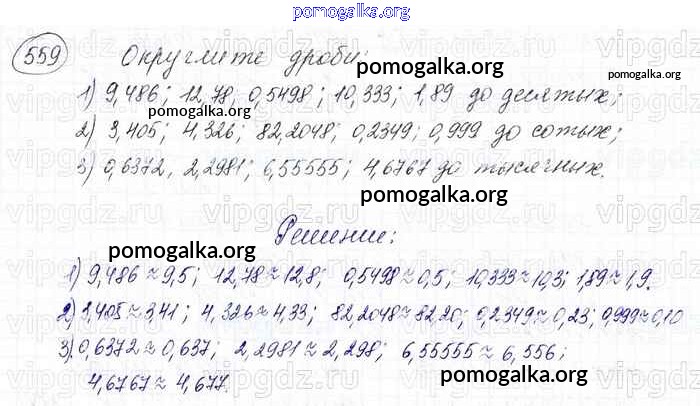 pomogalka.org
559 Округлите дроби:
pomogalka.org
1) 9,486; 12,78, 0,5498; 10,333; 1,89 до десятых;
pomogalka.org
pomogalka.org
2) 3,405; 4,326; 82,2048; 0,2349; 0,999 до сотых;
3) 0,6372, 2,2981; 6,55555; 4,6767 до тысячных.
pomogalka.org
vipgdz.ru
Решение:
pomogalka.org
pomogalka.org
1) 9,486≈9,5; 12,78≈12,8; 0,5498≈0,5; 10,333≈10,3; 1,89≈1,9.
2) 3,405≈3,41; 4,326≈4,33; 82,2048≈82,20; 0,2349≈0,23; 0,999≈0,10
3) 0,6372≈0,637; 2,2981≈2,298; 6,55555≈6,556;
4,6767≈4,677.
pomogalka.org
pomogalka.org